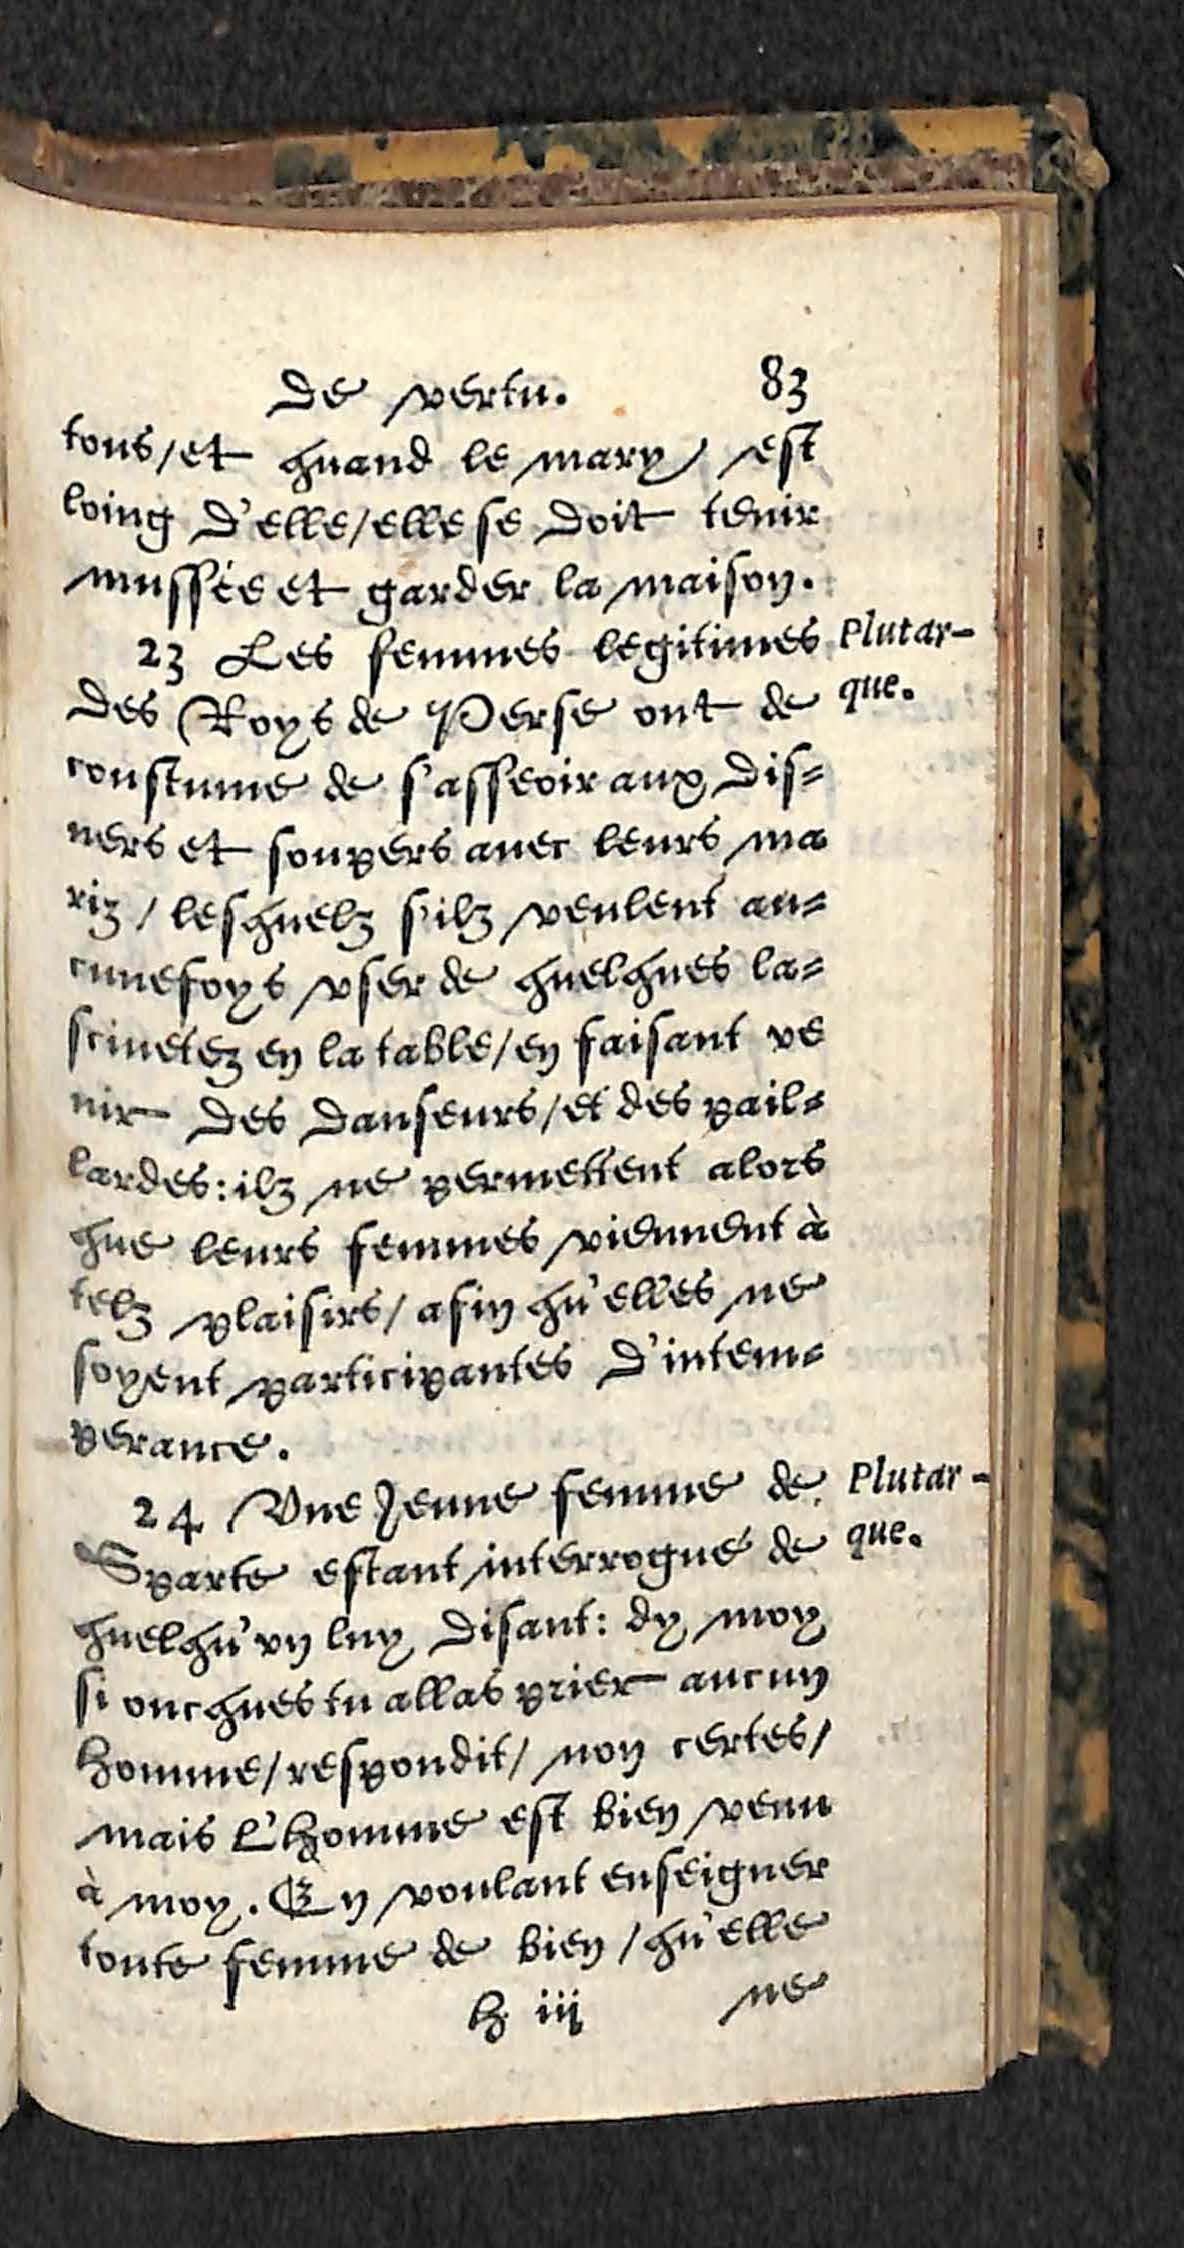 de vertu. 83
tous/et quand le mary est
loing d'elle/elle se doit tenir
mussée et garder la maison.
23 Les femmes legitimes
Plutar-
que.
des Roys de Perse ont de
coustume de s'asseoir aux dis=
ners et soupers auec leurs ma
riz/lesquelz s'ilz veulent au=
cunefoys vser de quelques la=
sciuetez en la table/en faisant ve
nir des danseurs/et des pail=
lardes: ilz ne permettent alors
que leurs femmes viennent à
telz plaisirs/afin qu'elles ne
soyent participantes d'intem=
perance.
24 Vne Jeune femme de
Plutar-
que.
Sparte estant interrogué de
quelqu'vn luy disant: dy moy
si oncques tu allas prier aucun
homme/respondit/non certes/
mais l'homme est bien venu
à moy. En voulant enseigner
toute femme de bien/qu'elle
h iij ne